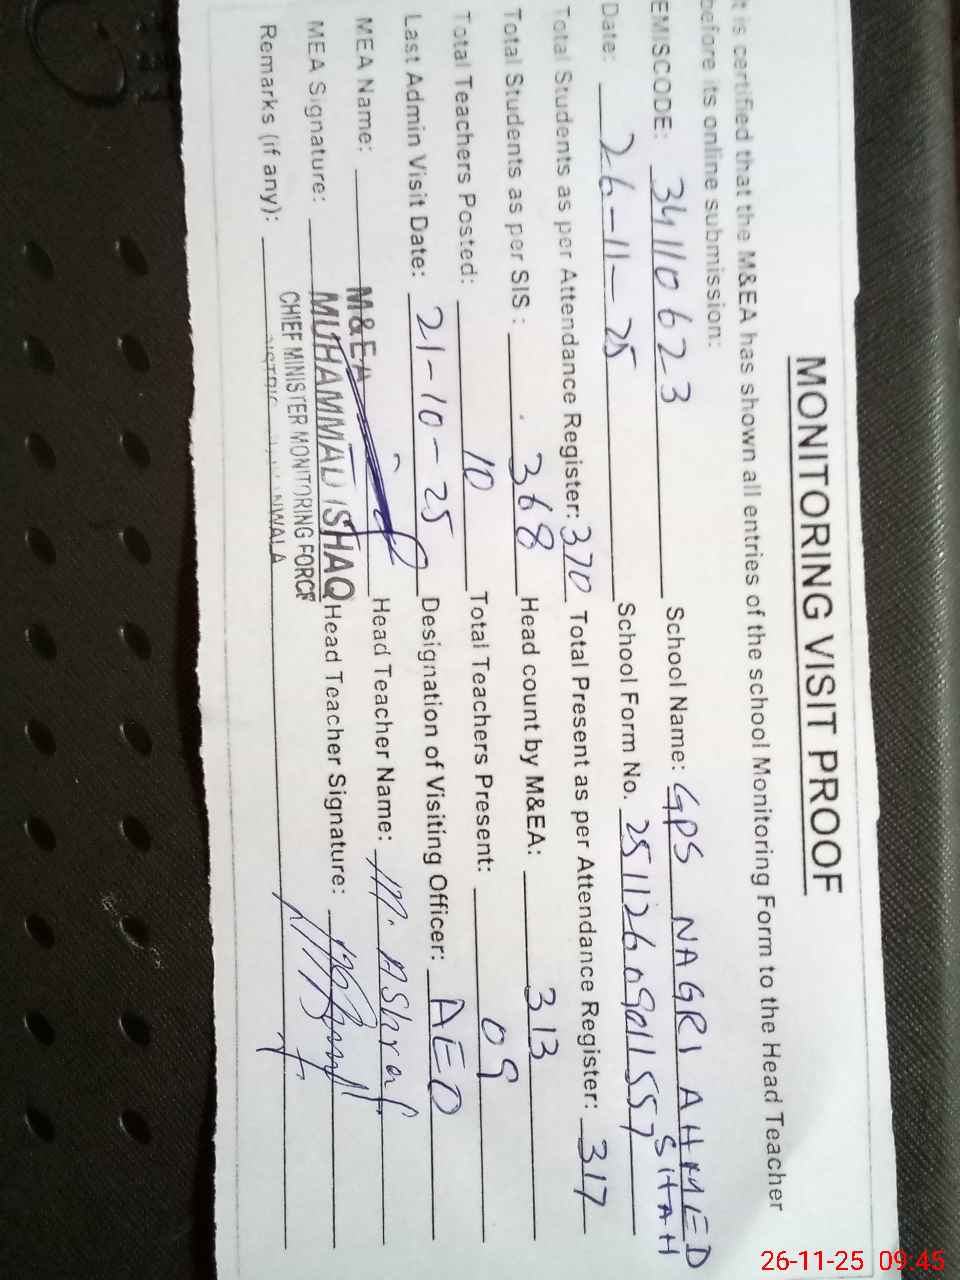 MONITORING VISIT PROOF
It is certified that the M&EA has shown all entries of the school Monitoring Form to the Head Teacher
before its online submission:
EMISCODE: 34110623 School Name: GPS NAGRI AHMED SHAH
Date: 26-11-25 School Form No. 25112609011557
Total Students as per Attendance Register: 370 Total Present as per Attendance Register: 317
Total Students as per SIS: 368 Head count by M&EA: 313
Total Teachers Posted: 10 Total Teachers Present: 09
Last Admin Visit Date: 21-10-25 Designation of Visiting Officer: AEO
MEA Name: M&EA Head Teacher Name: M. Ashraf
MEA Signature: MUHAMMAD ISHAQ Head Teacher Signature:
Remarks (if any): CHIEF MINISTER MONITORING FORCE
26-11-25 09:45